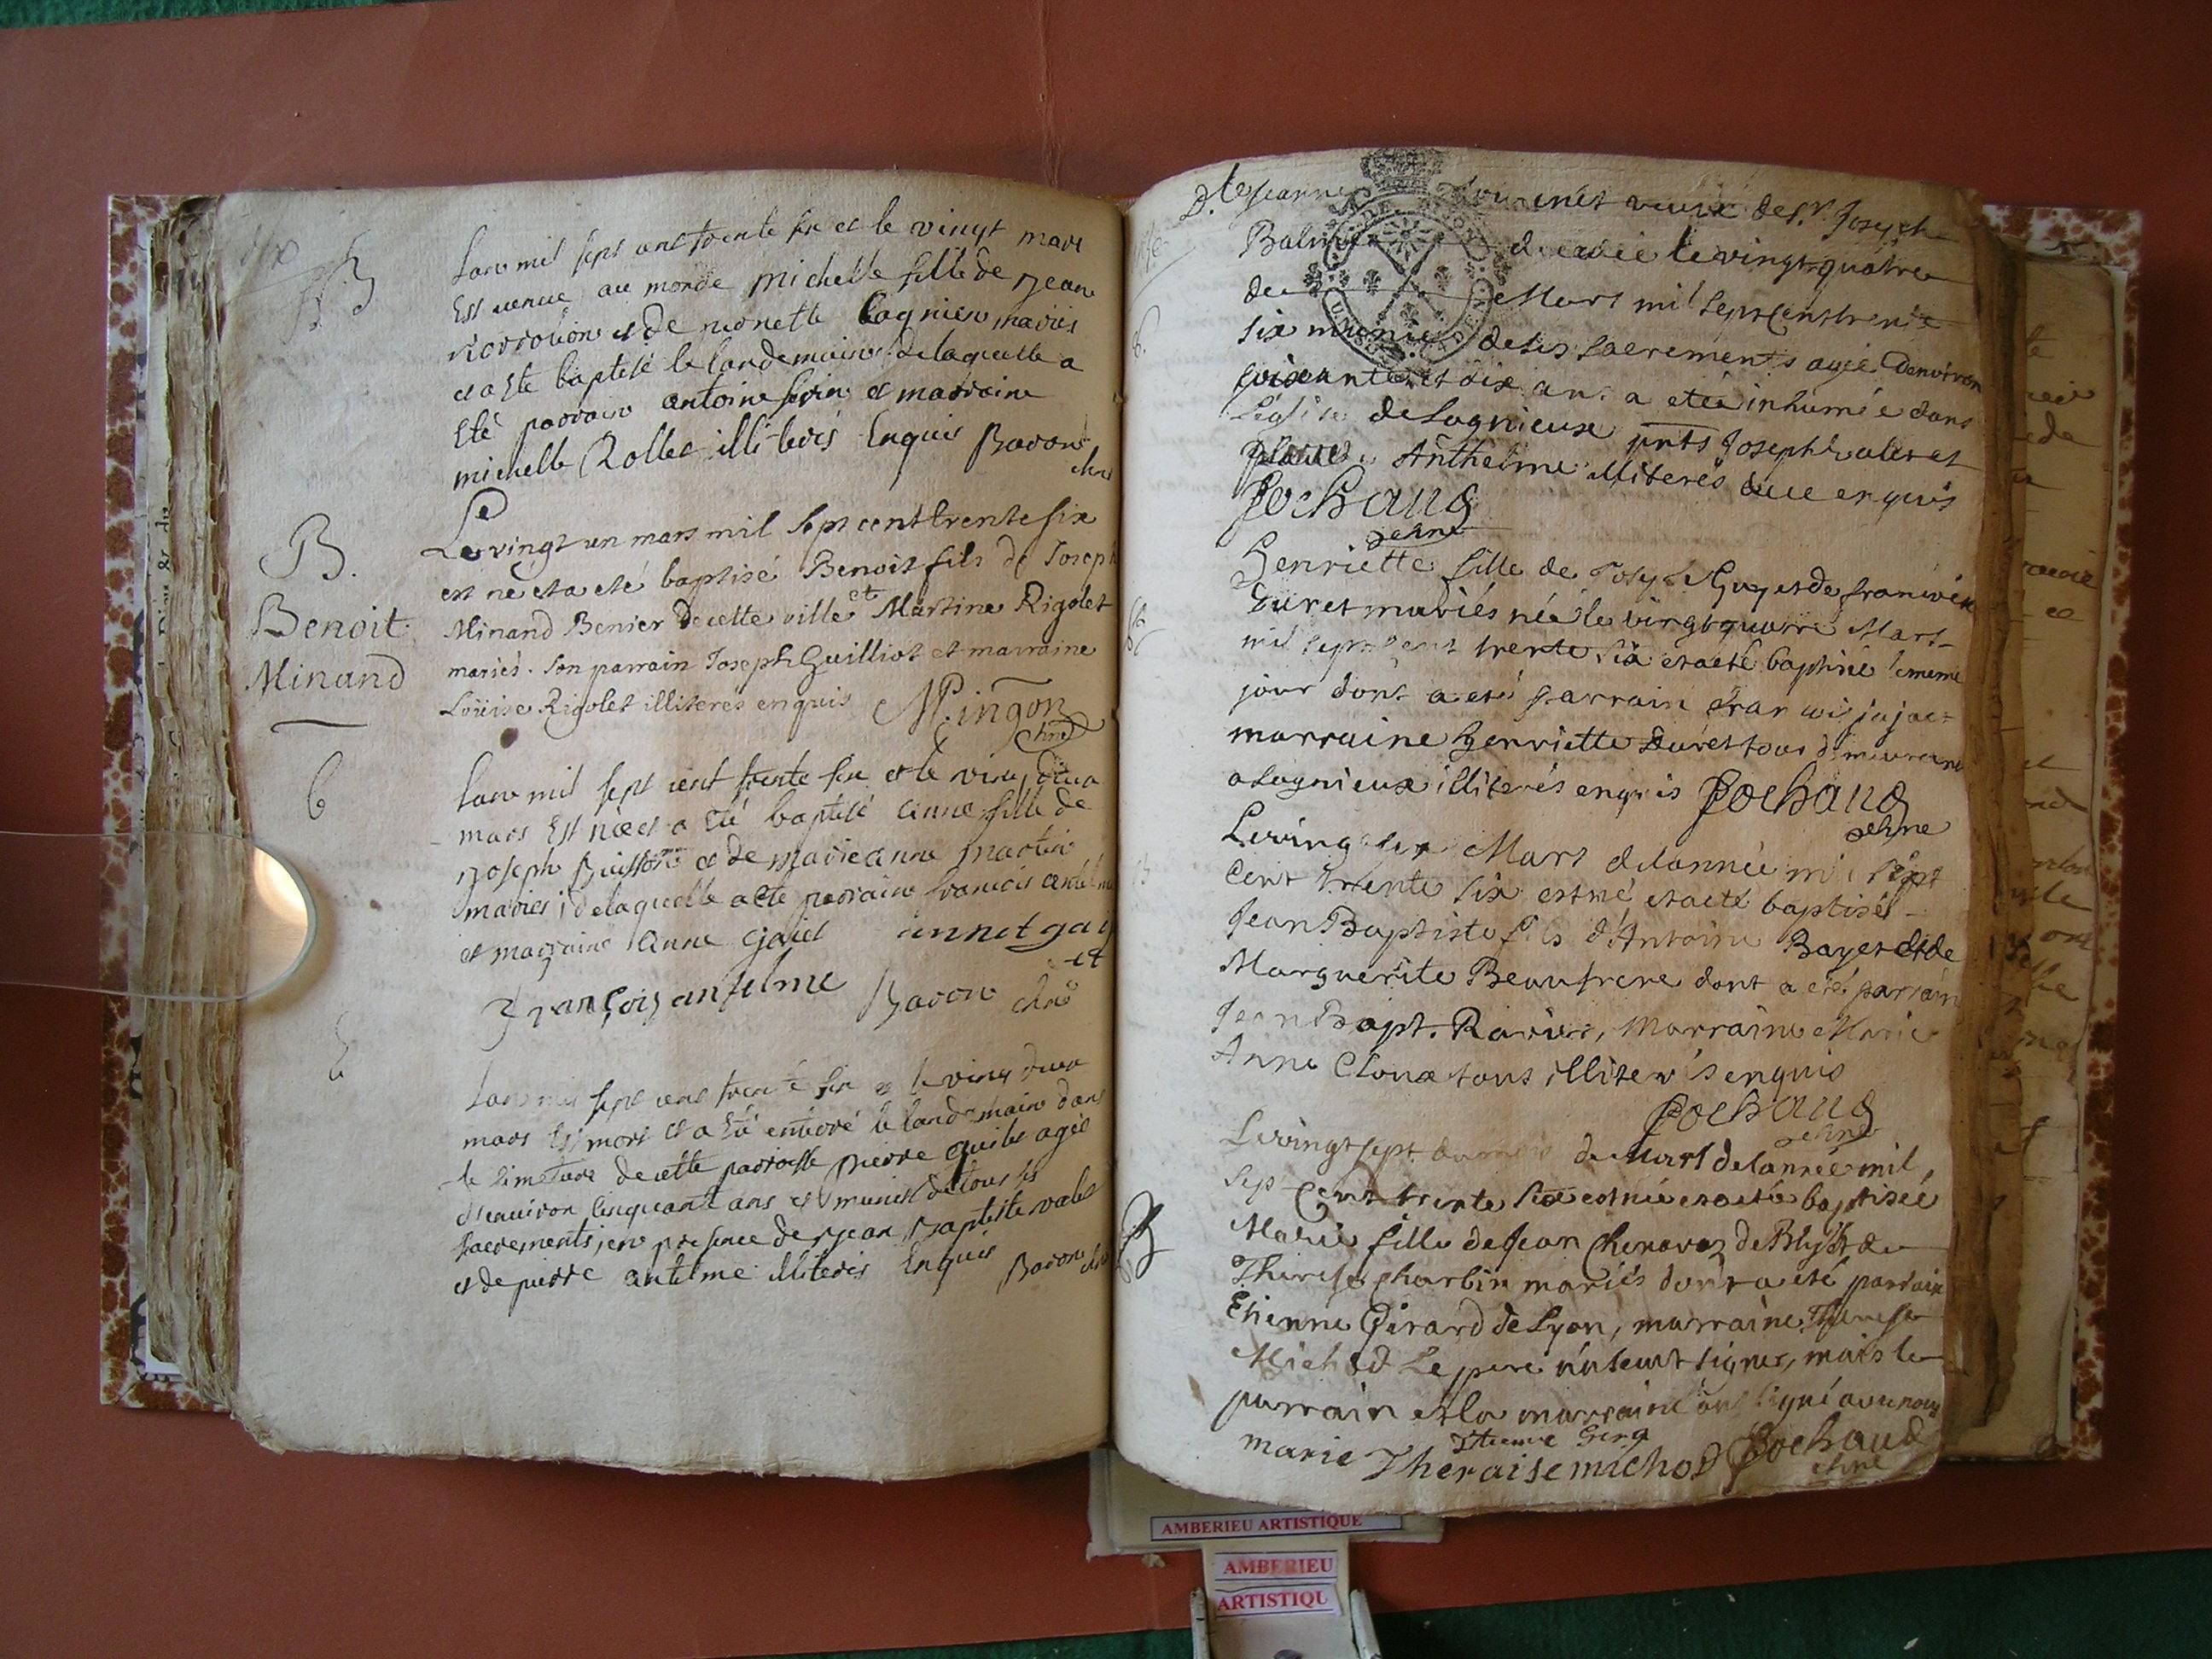 dix
B
Lan mil sept cent trente six et le vingt mars
Est venue au monde michelle fille de Jean
et de pernette Cagnieu mariés
et a Eté baptisé le landemain delaquelle a
Eté parrain antoine serin et marraine
michelle Rollet illiterés Enquis Baron
chne
B.
Benoit
Minand
Le vingt un mars mil sept cent trente six
est né et a eté baptisé Benoit fils de Joseph
Minand Benier de cette ville et Martine Rigolet
mariés. son parrain Joseph Guilliot et marraine
Loüise Rigolet illiterés enquis Mingon
chne
Lan mil sept cent trente six et le vingt deux
mars Est née et a Eté baptisé anne fille de
Joseph Buisson et de marie anne martin
mariés, delaquelle a eté parrain francois antelme
et marraine anne gaiet annet gay
et
François anselme Baron chne
Lan mil sept cent trente six et le vingt deux
mars Est mort et a Eté enterré le landemain dans
le simetiere de cette parroisse pierre agié
d'enuiron cinquant ans et munis de tous les
sacrements, en presence de Jean Baptiste valet
et de pierre antelme illiterés Enquis Baron chne
D.lle Jeanne veuve de S.r Joseph
decedée le vingt quatre
de Mars mil sept cent trente
six munie de ses sacrements agée d'environ
soixante et dix ans a etée inhumée dans
l'église de Lagnieux pnts Joseph valet et
Anthelme illiterés de ce enquis
Pochaud
chne
Henriette fille de Joseph Guy et de francoise
Duret mariés née le vingt quatre Mars
mil sept cent trente six et a eté baptisée le meme
jour dont a eté parrain francois jajac
marraine Henriette Duret tous demeurant
a Lagnieux illiterés enquis Pochaud
chne
Le vingt six Mars de lannée mil sept
cent trente six est né et a eté baptisé
Jean Baptiste fils d'Antoine Bayet et de
Marguerite Beaufrere dont a eté parrain
Jean Bapt. Ravier, Marraine Marie
Anne Cloux tous illiterés enquis
Pochaud
chne
Le vingt sept du mois de Mars de lannée mil
sept Cent trente six est née et a eté baptisée
B
Marie fille de Jean Chenavaz de Blyes et de
Therese charbin mariés dont a eté parrain
Etienne Girard de Lyon, marraine Therese
Michod Le pere n'a seut signer, mais le
parrain et la marraine ont signé avec nous
marie Theraise michod Pochaud
chne
AMBERIEU ARTISTIQUE
AMBERIEU
ARTISTIQU